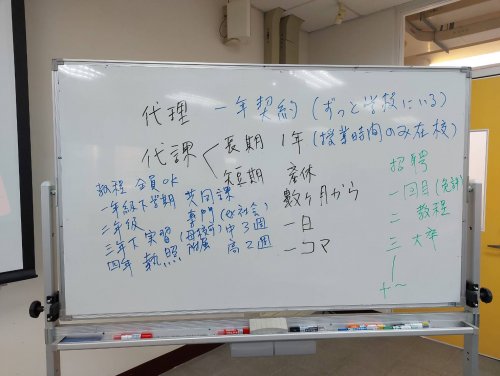 代理 一年契約(ずっと学校にいる)
代課 長期 1年(授業時間のみ在校)
短期 産休
数ヶ月から
一日
一コマ
教程 全員OK
一年級下学期 共同課
二年級 専門(ex社会)
三年下実習(母校可)中3週
四年 執照 附属 高2週
招聘
一回目(免許)
二 教程
三 大卒
十〜